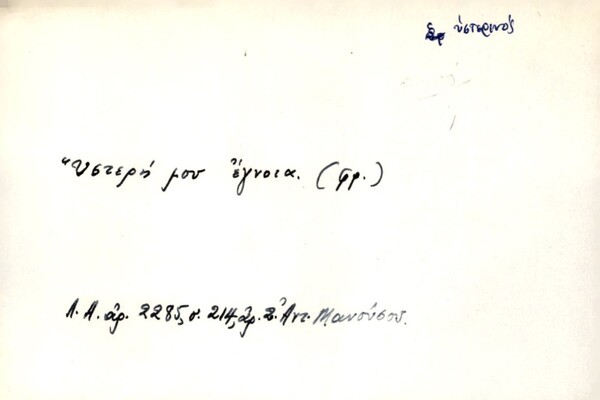 ὑστερινός
Ὕστερή μου ἔγνοια. (φρ.)
Λ.Α. ἀρ. 2285, σ. 214, ἀρ. 2. Ἀντ. Μανούσου.